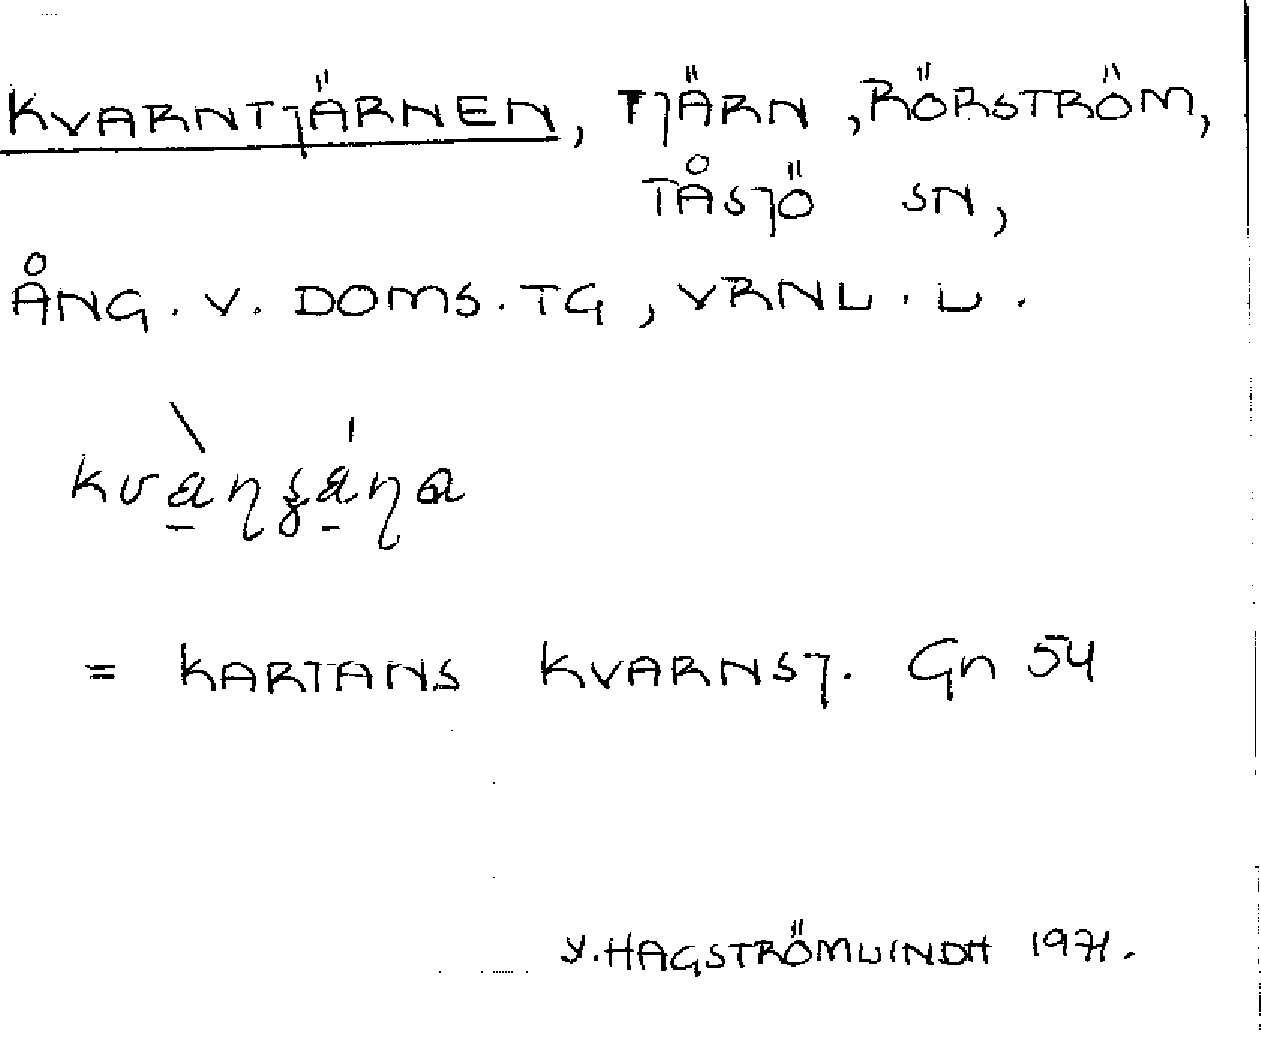 KVARNTJÄRNEN, TJÄRN, RÖRSTRÖM,
TÅSJÖ SN,
ÅNG. V. DOMS. TG, VRNL. L.
= KARTANS KVARNSJ. Gn 54
Y. HAGSTRÖMLINDH 1971.